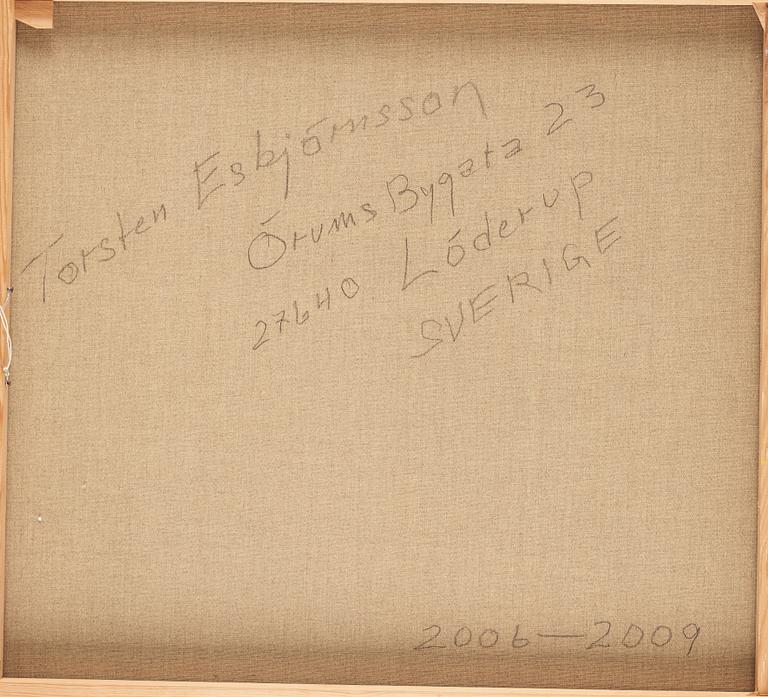 Torsten Esbjörnsson
Örums Bygata 23
27640 Löderup
SVERIGE
2006—2009